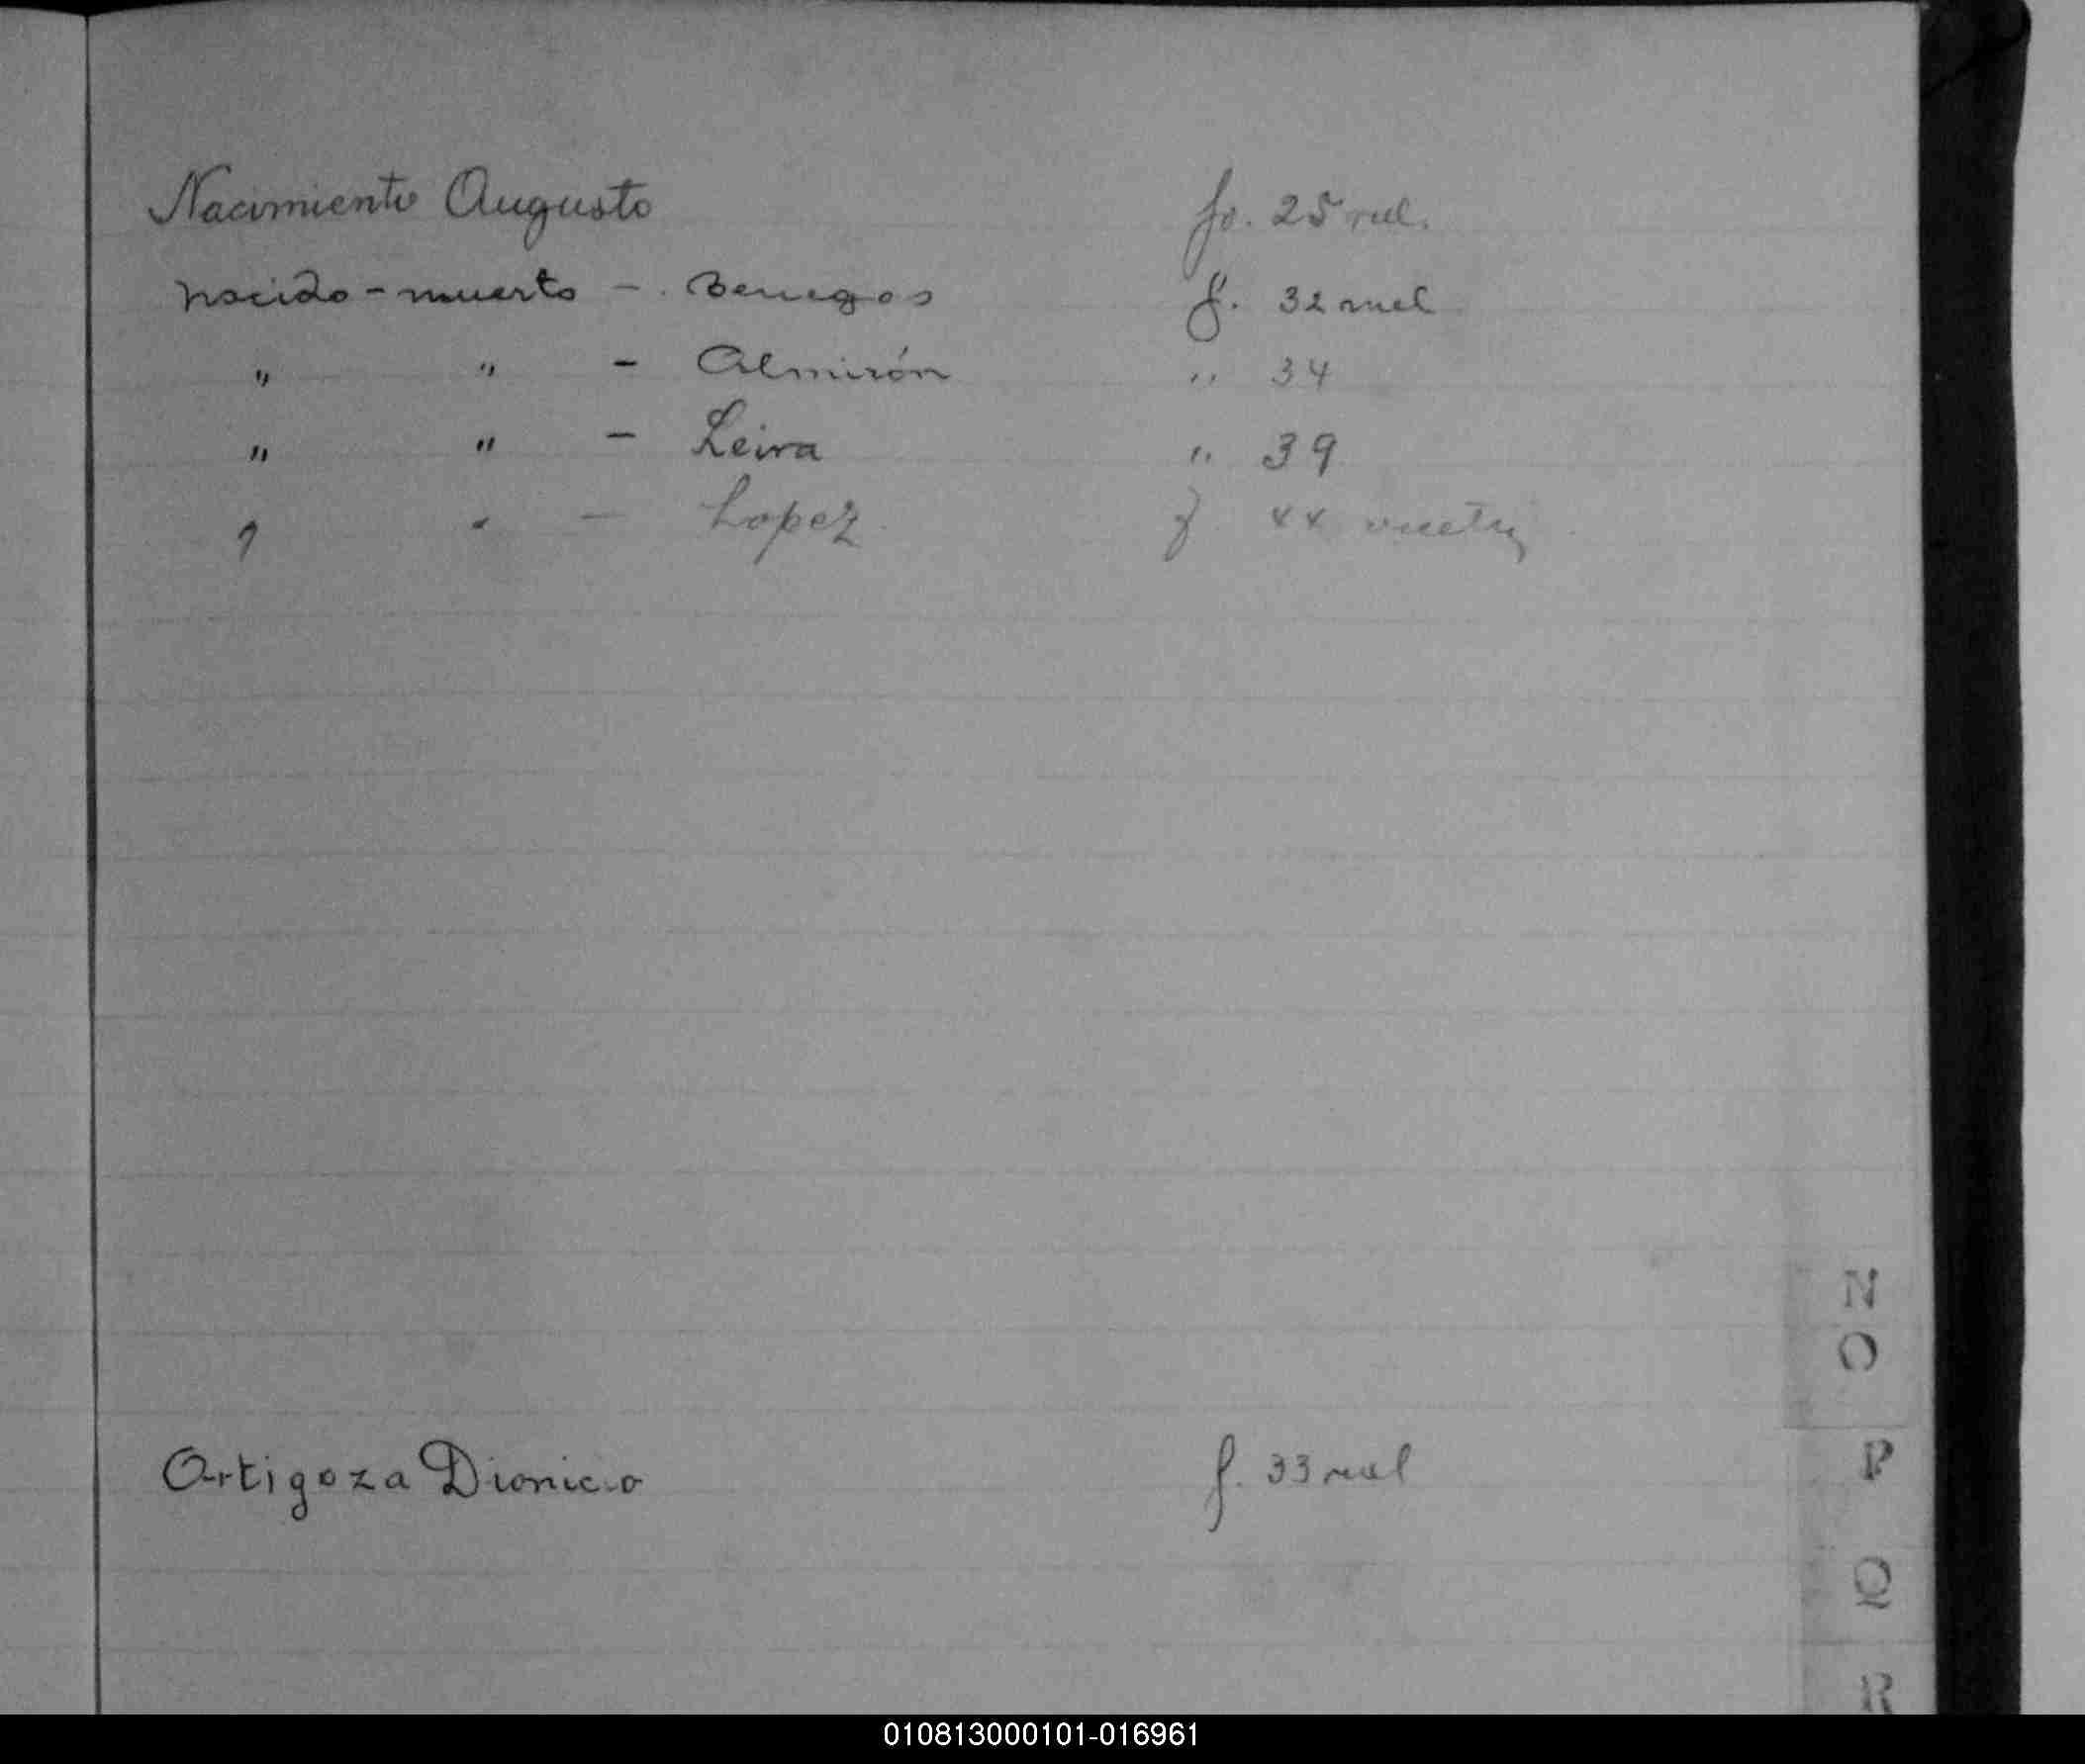 Nacimiento Augusto fo. 25 vul.
nacido - muerto - Benegas f. 32 vuel
" " - Almirón " 34
" " - Leiva " 39
" " - Lopez f 44 vuelta
N
O
Ortigoza Dionicio f. 33 vuel
P
Q
R
010813000101-016961